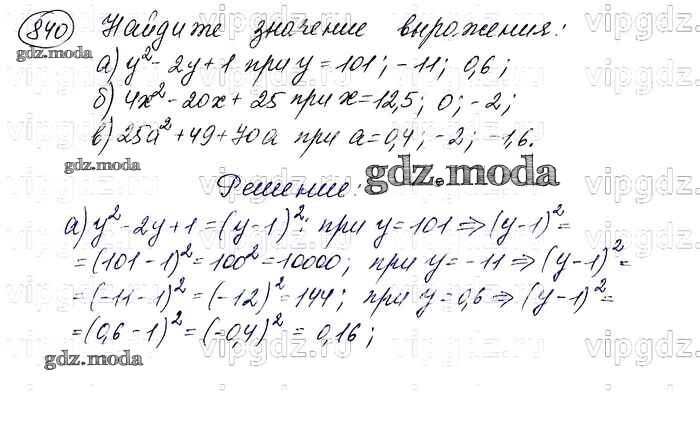 840 Найдите значение выражения:
gdz.moda
а) y² - 2y + 1 при y = 101; -11; 0,6;
б) 4x² - 20x + 25 при x = 12,5; 0; -2;
в) 25a² + 49 + 70a при a = 0,4; -2; -1,6.
gdz.moda
Решение:
gdz.moda
а) y² - 2y + 1 = (y - 1)²; при y = 101 ⇒ (y - 1)² =
= (101 - 1)² = 100² = 10000; при y = -11 ⇒ (y - 1)² =
= (-11 - 1)² = (-12)² = 144; при y = 0,6 ⇒ (y - 1)² =
= (0,6 - 1)² = (-0,4)² = 0,16;
gdz.moda
vipgdz.ru